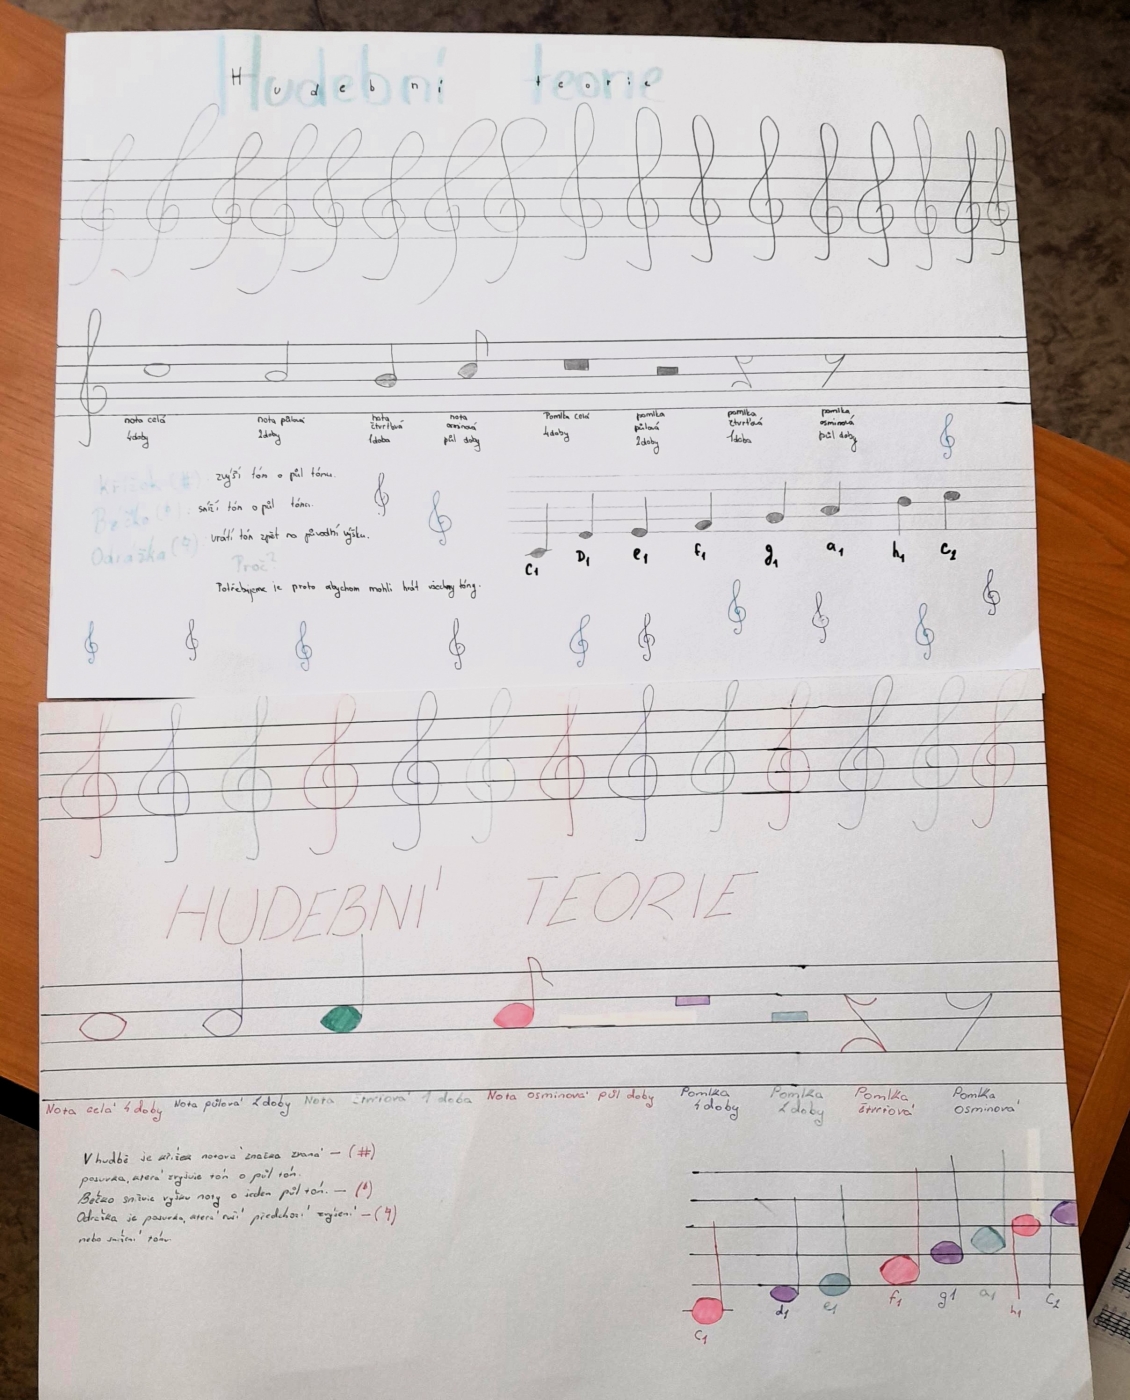 Hudební teorie
nota celá
4doby
nota půlová
2doby
nota
čtvrťová
1doba
nota
osminová
půl doby
Pomlka celá
4doby
pomlka
půlová
2doby
pomlka
čtvrťová
1doba
pomlka
osminová
půl doby
Křížek (#) zvýší tón o půl tónu.
Béčko (b): sníží tón o půl tónu.
Odrážka (♮) vrátí tón zpět na původní výšku.
Proč?
Potřebujeme je proto abychom mohli hrát všechny tóny.
C1 D1 e1 f1 g1 a1 h1 C2
HUDEBNÍ TEORIE
Nota celá 4 doby
Nota půlová 2 doby
Nota čtvrťová 1 doba
Nota osminová půl doby
Pomlka
4 doby
Pomlka
2 doby
Pomlka
čtvrťová
Pomlka
osminová
V hudbě je křížek notová značka zvaná – (#)
posuvka, která zvyšuje tón o půl tón.
Béčko snižuje výšku noty o jeden půl tón. – (b)
Odrážka je posuvka, která ruší předchozí zvýšení – (♮)
nebo snížení tónu
C1 d1 e1 f1 g1 a1 h1 C2